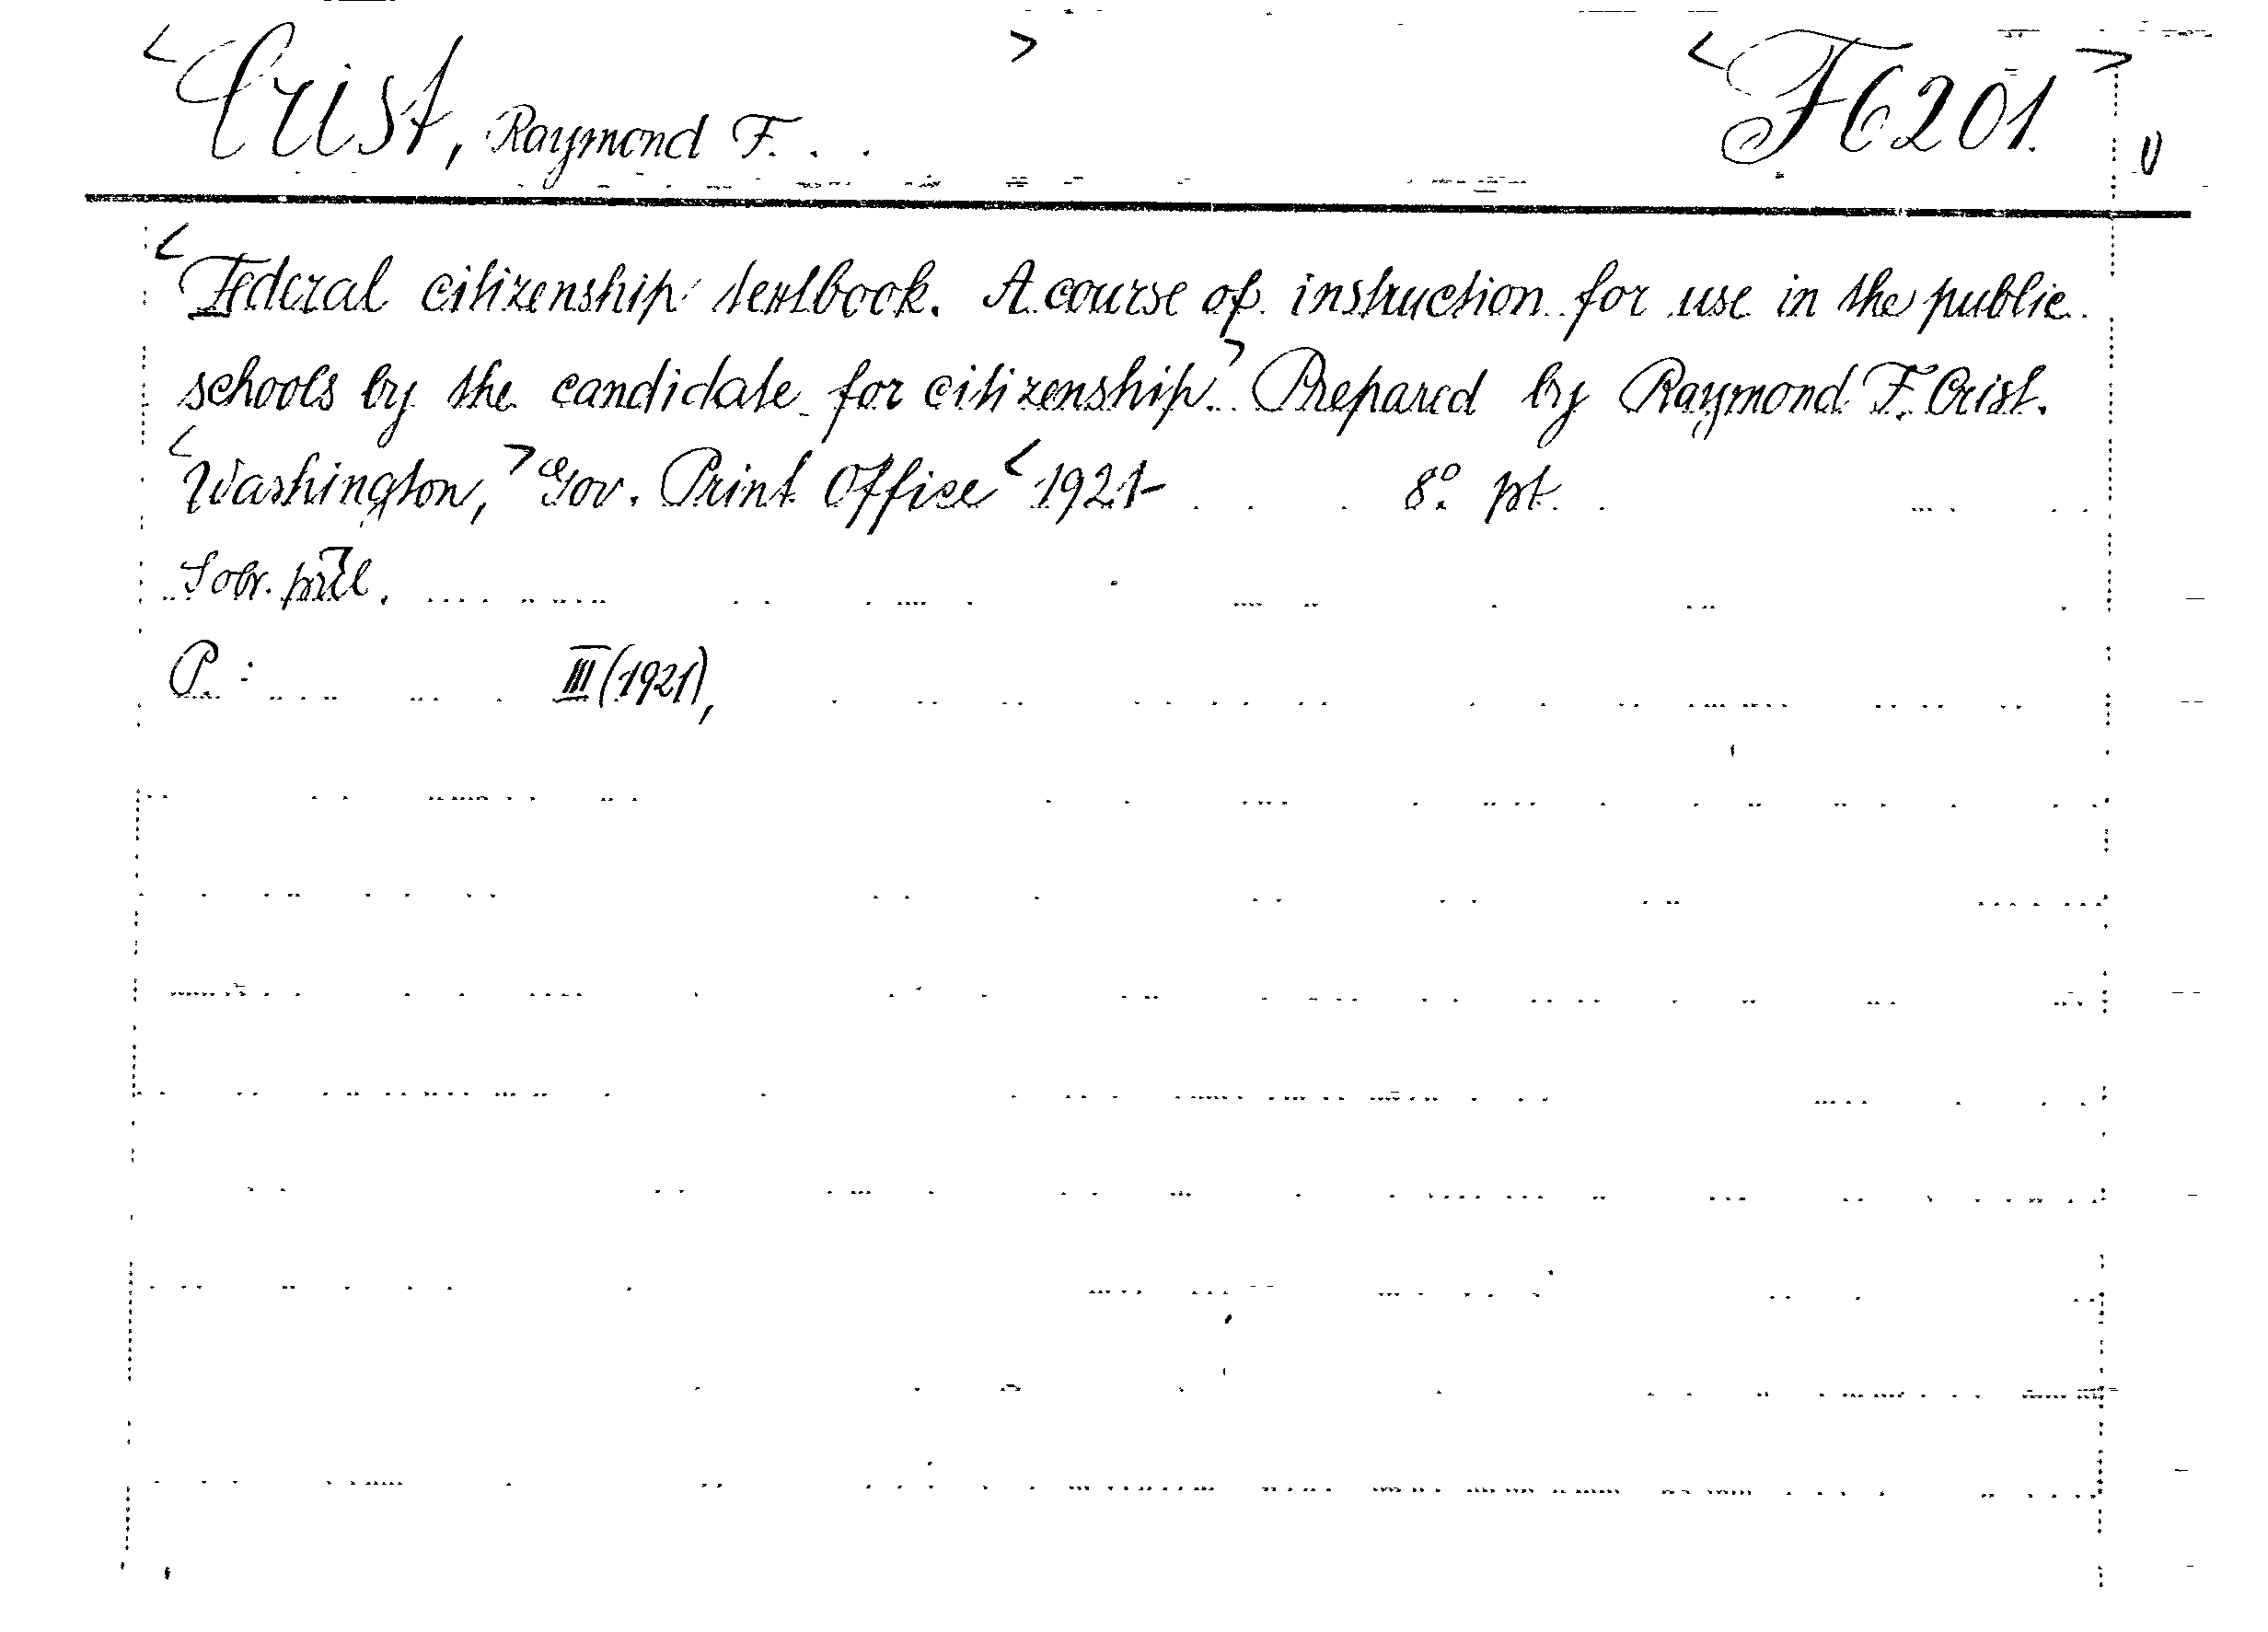 <Crist, Raymond F. . . > <F6201.>
<Federal citizenship textbook. A course of instruction for use in the public
schools by the candidate for citizenship.> Prepared by Raymond F. Crist.
<Washington,> Gov. Print Office <1921- 8° pt.
P: III (1921),